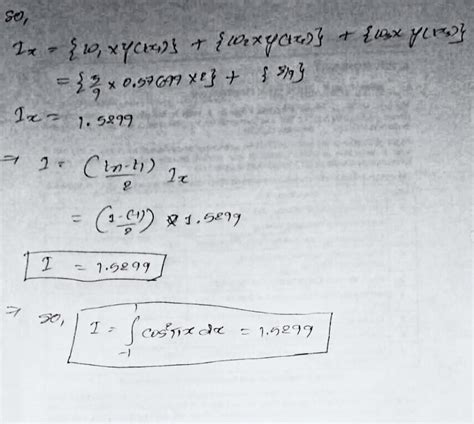 so,
Ix = {w₁ x y(x₁)} + {w₂ x y(x₂)} + {w₃ x y(x₃)}
= {5/9 x 0.57699 x 2} + { 8/9}
Ix = 1.5299
⇒ I = (tn-t1)/2 Ix
= (1-(-1)/2) x 1.5299
I = 1.5299
⇒ so, I = ∫₋₁¹ cos²πx dx = 1.5299